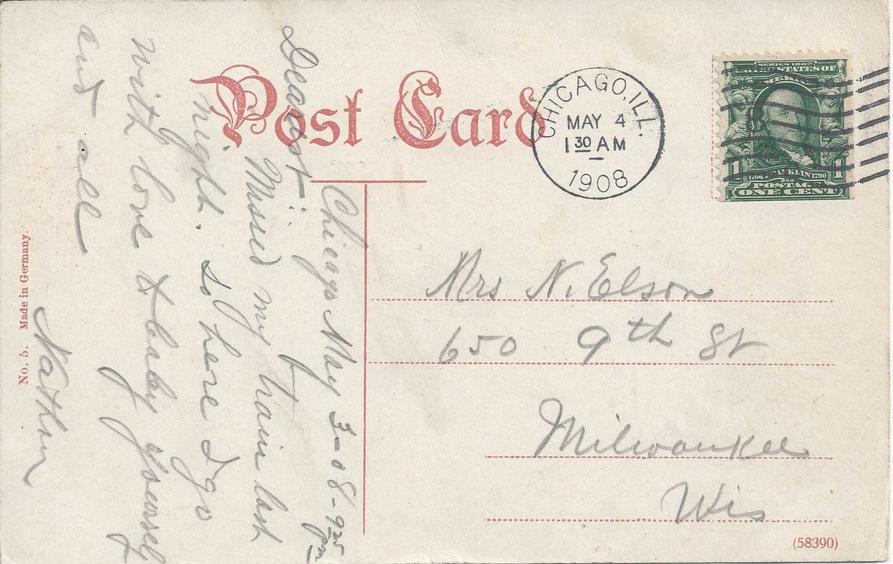 Post Card
CHICAGO, ILL.
MAY 4
1 30 AM
1908
SERIES 1902
UNITED STATES OF
AMERICA
1 FRANKLIN 1790 1
POSTAGE
ONE CENT
Chicago May 3-08-9 25 pm
Dearest:
Missed my train last
night. So here I go
with love to baby yourself
and all
Nathan
Mrs N. Elson
650 9th St
Milwaukee
Wis
No. 5. Made in Germany.
(58390)